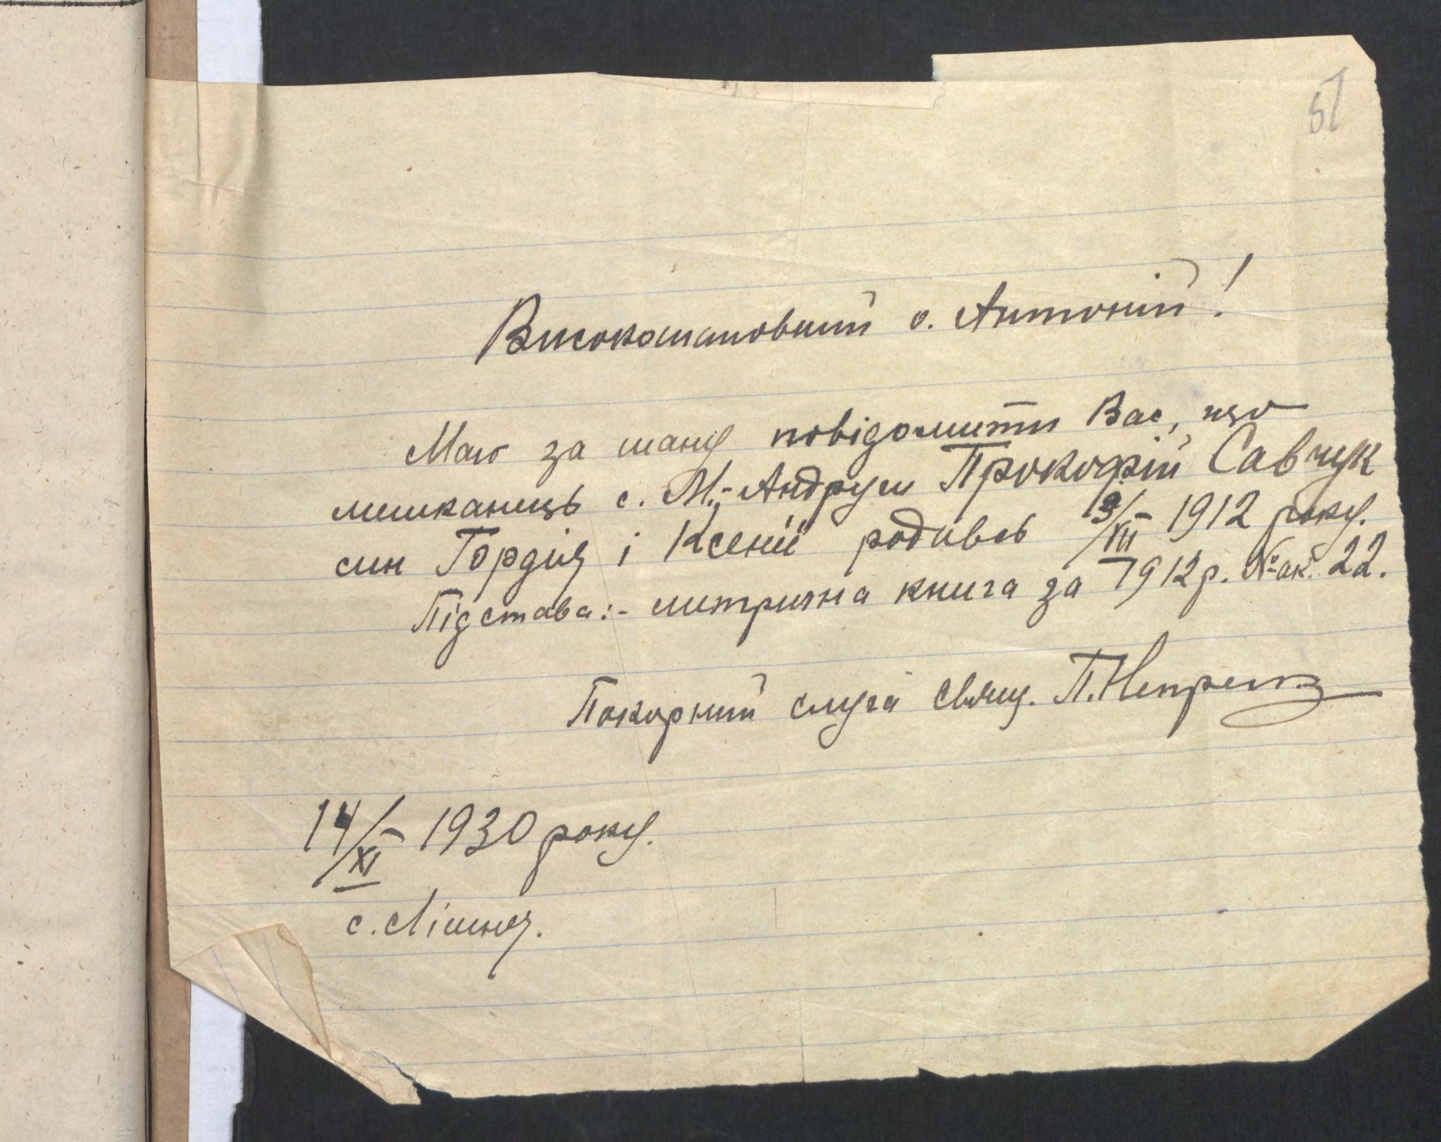 87
Високошановний о. Антоній!
Маю за шану повідомити Вас, що
мешканець с. М.-Андруги Прокофій Савчук
син Гордія і Ксенії родивсь 9/III 1912 року.
Підстава:- метрична книга за 1912 р. № ак. 22.
Покорний слуга свящ. П.
14/XI 1930 року.
с. Лішня.